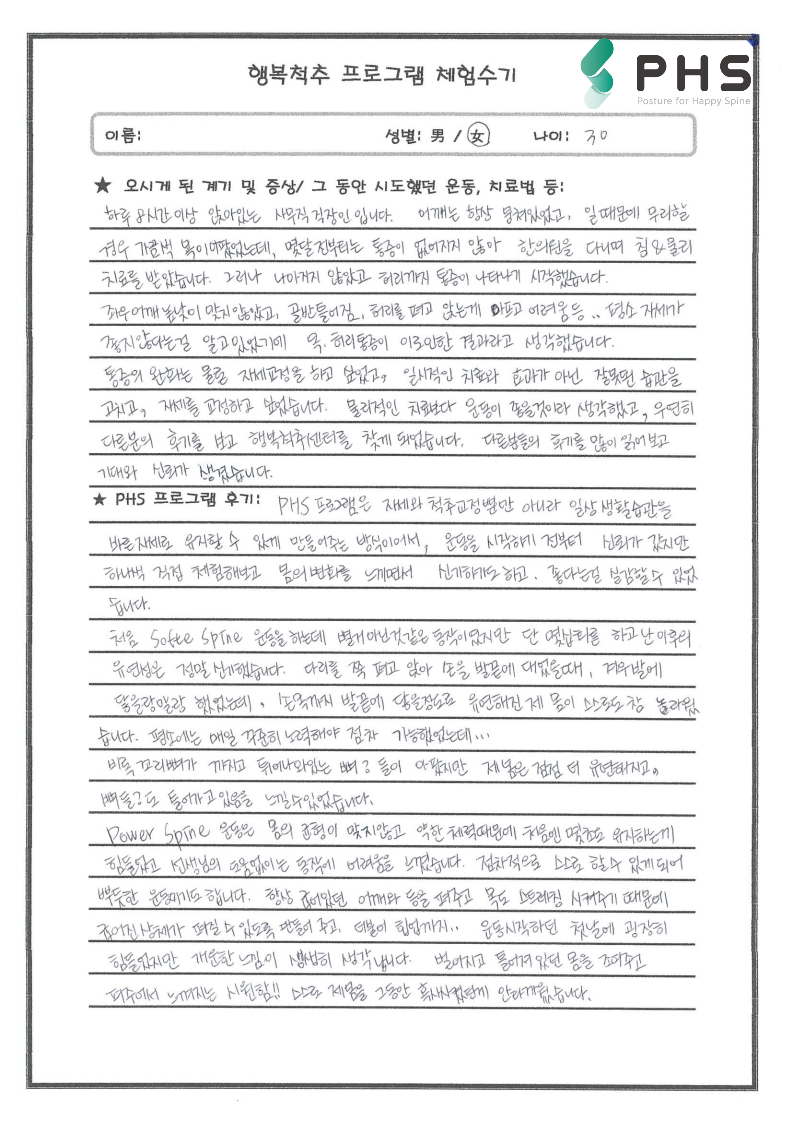 행복척추 프로그램 체험수기
PHS
Posture for Happy Spine
이름: 성별: 男 / 女 나이: 30
★ 오시게 된 계기 및 증상/ 그 동안 시도했던 운동, 치료법 등:
하루 8시간이상 앉아있는 사무직 직장인 입니다. 어깨는 항상 뭉쳐있었고, 일 때문에 무리할
경우 가끔씩 목이 아팠었는데, 몇달 전부터는 통증이 없어지지 않아 한의원을 다니며 침&물리
치료를 받았습니다. 그러나 나아지지 않았고 허리까지 통증이 나타나기 시작했습니다.
좌우어깨 높낮이 맞지않았고, 골반틀어짐, 허리를 펴고 앉는게 아프고 어려움 등.. 평소 자세가
좋지않다는걸 알고 있었기에 목.허리통증이 이로인한 결과라고 생각했습니다.
통증의 완화는 물론 자세교정을 하고 싶었고, 일시적인 치료와 효과가 아닌 잘못된 습관을
고치고, 자세를 교정하고 싶었습니다. 물리적인 치료보다 운동이 좋을것이라 생각했고, 우연히
다른분의 후기를 보고 행복척추센터를 찾게 되었습니다. 다른분들의 후기를 많이 읽어보고
기대와 신뢰가 생겼습니다.
★ PHS 프로그램 후기: PHS 프로그램은 자세와 척추교정뿐만 아니라 일상 생활습관을
바른자세로 유지할 수 있게 만들어주는 방식이어서, 운동을 시작하기 전부터 신뢰가 갔지만
하나씩 직접 체험해보고 몸의 변화를 느끼면서 신기하기도 하고. 좋다는걸 실감할 수 있었
습니다.
처음 Softe Spine 운동을 하는데 별거 아닌것 같은 동작이었지만 단 몇십터를 하고 난 이후의
유연성은 정말 신기했습니다. 다리를 쭉 펴고 앉아 손을 발끝에 대었을때, 겨우 발에
닿을랑말랑 했었는데, 손목까지 발끝에 닿을정도로 유연해진 제 몸이 스스로도 참 놀라웠
습니다. 평소에는 매일 꾸준히 노력해야 점차 가능했었는데...
비록 꼬리뼈가 까지고 튀어나와있는 뼈 들이 아팠지만 제 몸은 점점 더 유연해지고,
뼈들도 들어가고 있음을 느낄 수 있었습니다.
Power Spine 운동은 몸의 균형이 맞지않고 약한 체력때문에 처음엔 몇초도 유지하는게
힘들었고 선생님의 도움없이는 동작에 어려움을 느꼈습니다. 점차적으로 스스로 할 수 있게 되어
뿌듯한 운동이기도 합니다. 항상 굽어있던 어깨와 등을 펴주고 목도 스트레칭 시켜주기 때문에
굽어진 상체가 펴질 수 있도록 만들어 주고, 더불어 힙업까지.. 운동시작하던 첫날에 굉장히
힘들었지만 개운한 느낌이 생생히 생각납니다. 벌어지고 틀어져 있던 몸을 조여주고
펴주어서 느껴지는 시원함!! 스스로 제 몸을 그동안 혹사시켰단게 안타까웠습니다.